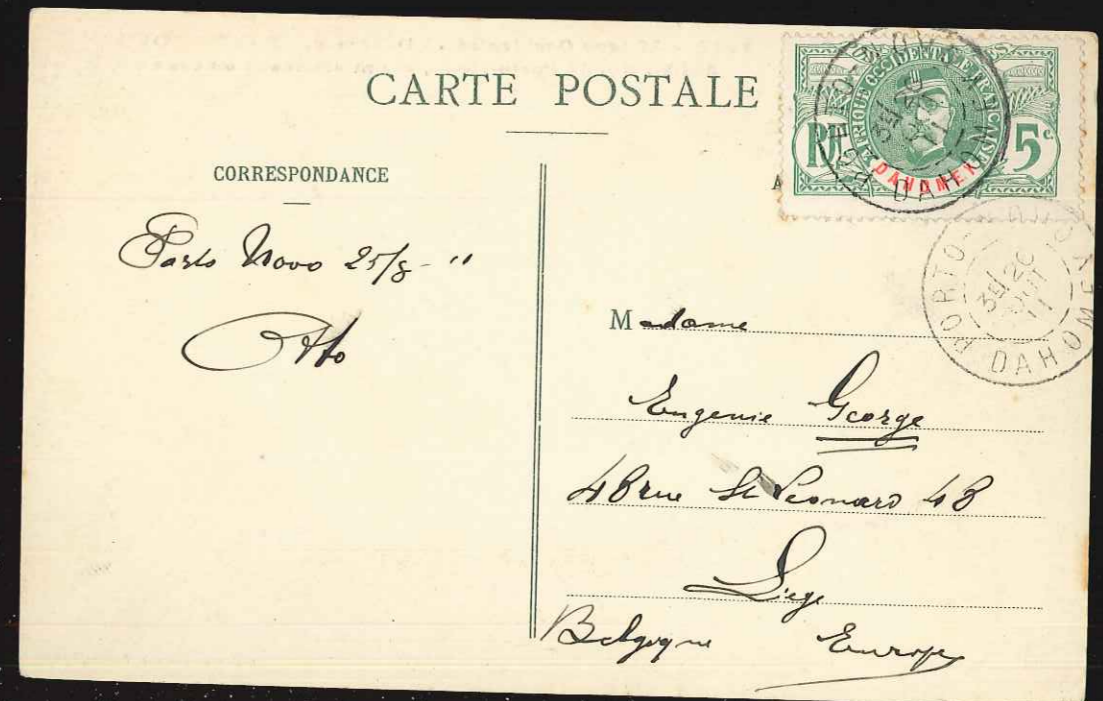 CARTE POSTALE
CORRESPONDANCE
Porto Novo 25/8 - 11
Otto
AFRIQUE OCCIDENTALE FRANÇAISE
RF
5 c.
DAHOMEY
PORTO-NOVO
3E / 20
AOUT
11
DAHOMEY
PORTO-NOVO
3E / 20
AOUT
11
DAHOMEY
A
Madame
Eugenie George
48 rue St Leonard 48
Liege
Belgique Europe